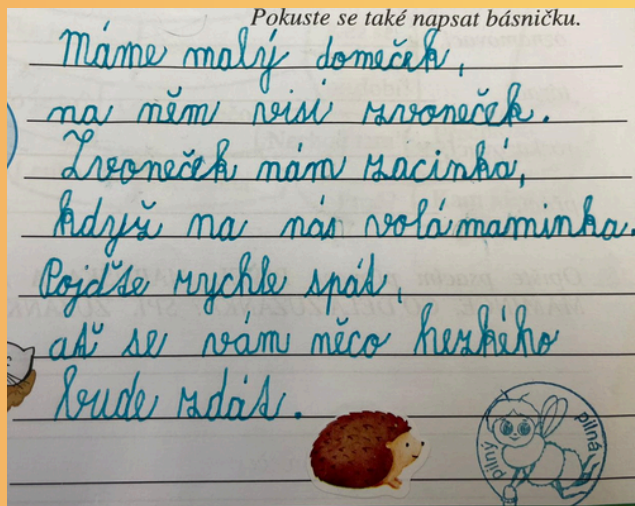 Pokuste se také napsat básničku.
Máme malý domeček,
na něm visí zvoneček.
Zvoneček nám zacinká,
když na nás volá maminka.
Pojďte rychle spát,
ať se vám něco hezkého
bude zdát.
pilný pilná